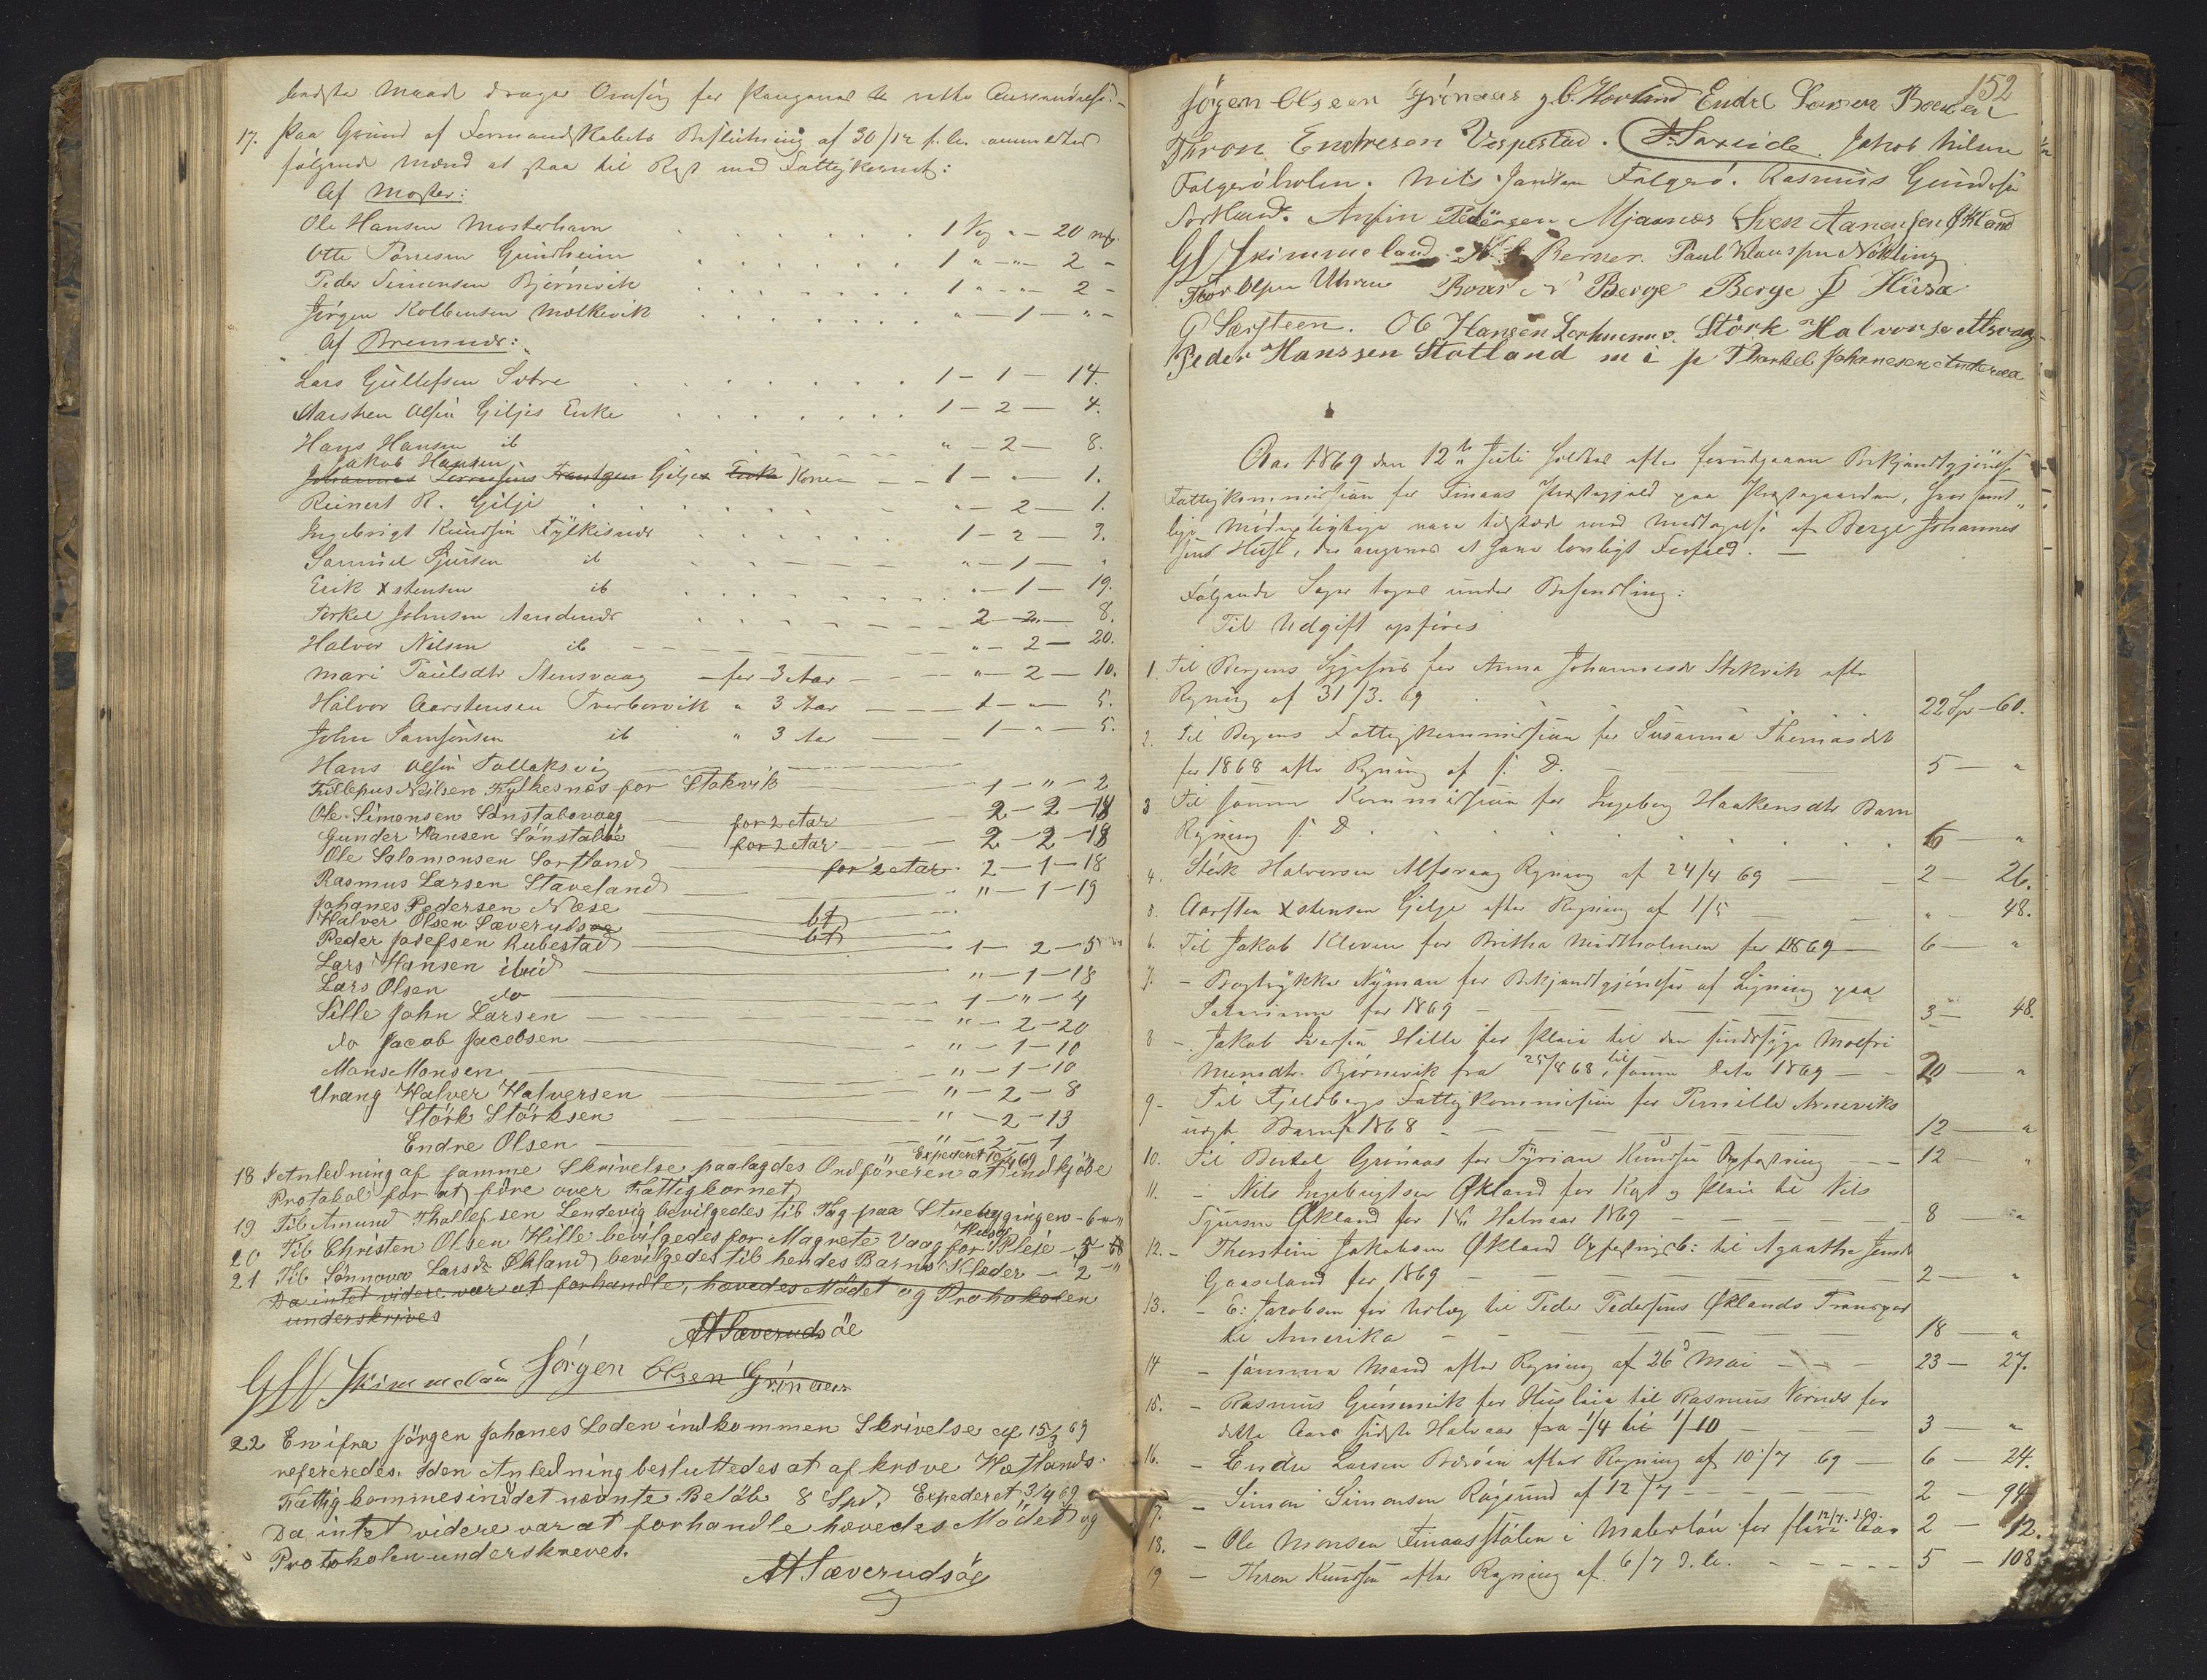 bedste Maade drage Omsorg for Pengenes rette Anvendelse.-
17. Paa Grund af Formandskabets Beslutning af 30/12 f. A. anmeldtes
følgende Mænd at staa til Rest med Fattigkornet:
Af Moster:
Ole Hansen Mosterhavn 1 Vog " - 20 mrk.
Otte Tørresen Gundheim 1 " - " 2 -
Peder Simonsen Bjørnevik 1 " - " 2 -
Jørgen Kolbensen Mælkevik " - 1 - " -
Af Bremnæs:
Lars Gullefsen Sætre 1 - 1 - 14.
Aarsten Olsen Giljes Enke 1 - 2 - 4.
Hans Hansen ib " - 2 - 8.
Jakob Hansen
Johannes Giljes Enke Kone 1 - " - 1.
Reinert R. Gilje " - 2 - 1.
Ingebrigt Knudsen Fylkisnæs 1 - 2 - 3.
Samuel Sjursen ib " - 1 - "
Erik Xstensen ib " - 1 - 19.
Torkel Johnsen Nandenæs 2 - 2 - 8.
Halvor Nilsen ib " - 2 - 20.
Mari Paulsdtr Stensvaag - for 3 Aar " - 2 - 10.
Halvor Aarstensen Tverborvik " 3 Aar 1 - " - 5.
John Samsonsen ib " 3 Aar 1 - " - 5.
Hans Olsen Follaksvig
Tillepus Neilsen Fylkesnæs for Stokvik 1 - " - 2
Ole Simonsen Sønstabovaag for 2 Aar 2 - 2 - 18
Gunder Hansen Sønstabøe for 2 Aar 2 - 2 - 18
Ole Salomonsen Sortland for 2 Aar 2 - 1 - 18
Rasmus Larsen Staveland " - 1 - 19
Johanes Pedersen Næse
Halver Olsen Sæverudsøe bt
Peder Josefsen Rubestad bt 1 - 2 - 5
Lars Hansen ibid " - 1 - 18
Lars Olsen do 1 - " - 4
Sille John Larsen " - 2 - 20
do Jacob Jacobsen " - 1 - 10
Mons Monsen " - 1 - 10
Urang Halver Halversen " - 2 - 8
Störk Störksen " - 2 - 13
Endre Olsen " - 2 - 1
Expederet 10/4 69
18 I Anledning af samme Skrivelse paalagdes Ordföreren at indkjöbe
Protokol for at före over Fattigkornet
19 Til Amund Thollefsen Lendevig bevilgedes til Tag paa Stuebygingen - 6 "
Huus
20 Til Christen Olsen Hille bevilgedes for Magrete Vaag for Pleje -
21 Til Sønnova Larsdr Økland bevilgedes til hendes Barns Klæder - 2 - "
Da intet videre var at forhandle, hævedes Mödet og Protokolen
underskrives
A H Sæverudsöe
Skimmeland Jörgen Olsen Grinaas
22 En ifra Jörgen Johanes Loden indkommen Skrivelse af 15/3 69
refereredes. I den Anledning besluttedes at afkræve Hætlands
Fattigkommesion det nævnte Beløb 8 Spd, Expederet 3/4 69
Da intet videre var at forhandle hævedes Mödet og
Protokolen underskreves.
A H Sæverudsöe
152
Jörgen Olsen Grinaas Hovland Endre Larsen
Thron Endresen Vespestad. Jakob Nilsen
Folgeröholm. Nils Jansen Folgerö. Rasmus Gundersen
Sortland. Anfin Pedersen Mjaanæs Sven Aanensen Økland
Skimmeland Berner. Paul Klausen Nökling
Thor Olsen Uhren Berge Berge J Husa
Ole Hansen Störk Halvorsen Alfsvaag
Peder Hanssen Stolland m i p Thorkel Johanesen
Aar 1869 den 12te Juli holdtes efter forudgaaen Bekjendtgjørelse
Fattigkommission for Finaas Præstegjeld paa Præstegaarden, hvor samt-
lige Mødepligtige vare tilstede med Undtagelse af Berge Johannes-
sens Huse, der angaves at have lovligt Forfald. -
Følgende Sager toges under Behandling:
Til Udgift opføres
1. Til Bergens Sygehus for Anna Johannesdr Stekvik efter
Regning af 31/3. 69 22 Sp - 60.
2. Til Bergens Fattigkommission for Susanna Thomasdtr
for 1868 efter Regning af s. D. 5 - "
3 Til samme Kommission for Ingeborg Haakensdtr Barn
Regning s. D 6 - "
4. Störk Halvorsen Alfsvaag Regning af 24/4 69 2 - 26.
5. Aarsten Xstensen Gilje efter Regning af 1/5 " - 48.
6. Til Jakob Kleven for Britha Midtholmen for 1869 6 - "
7. - Bogtrykker Nyman for Bekjendtgjørelse af Ligning paa
for 1869 3 - 48.
8 - Jakob Iversen Hille for Pleie til den sindssyge Malfri
Monsdtr. Bjørnevik fra 25/8 68 til samme Dato 1869 20 - "
9 - Til Fjeldbergs Fattigkommission for Pernille Arneviks
uægte Barn 1868 12 - "
10. Til Bertel Grönaas for Tyrian Knudsen Opfostring 12 - "
11. - Nils Ingebrigtsen Økland for Kost og Pleie til Nils
Sjursen Økland for 1ste Halvaar 1869 8 - "
12. - Thorstein Jakobsen Økland Opfostringsb: til Agaatha Jensdr
Gaaseland for 1869 2 - "
13. - E: Jacobsen for Udlæg til Peder Pedersens Øklands Transport
til Amerika 18 - "
14 - samme Mand efter Regning af 26de Mai 23 - 27.
15. - Rasmus Grønevik for Husleie til Rasmus Vornæs for
dette Aars sidste Halvaar fra 1/4 til 1/10 3 - "
16. - Endre Larsen Børøen efter Regning af 10/7 69 6 - 24.
17. - Simon Simonsen Røgsund af 12/7 2 - 94
18. - Ole Monsen Finaasstølen i Materløn for flere Aar 2 - 12.
19 - Thron Knudsen efter Regning af 6/7 d. A. 5 - 108